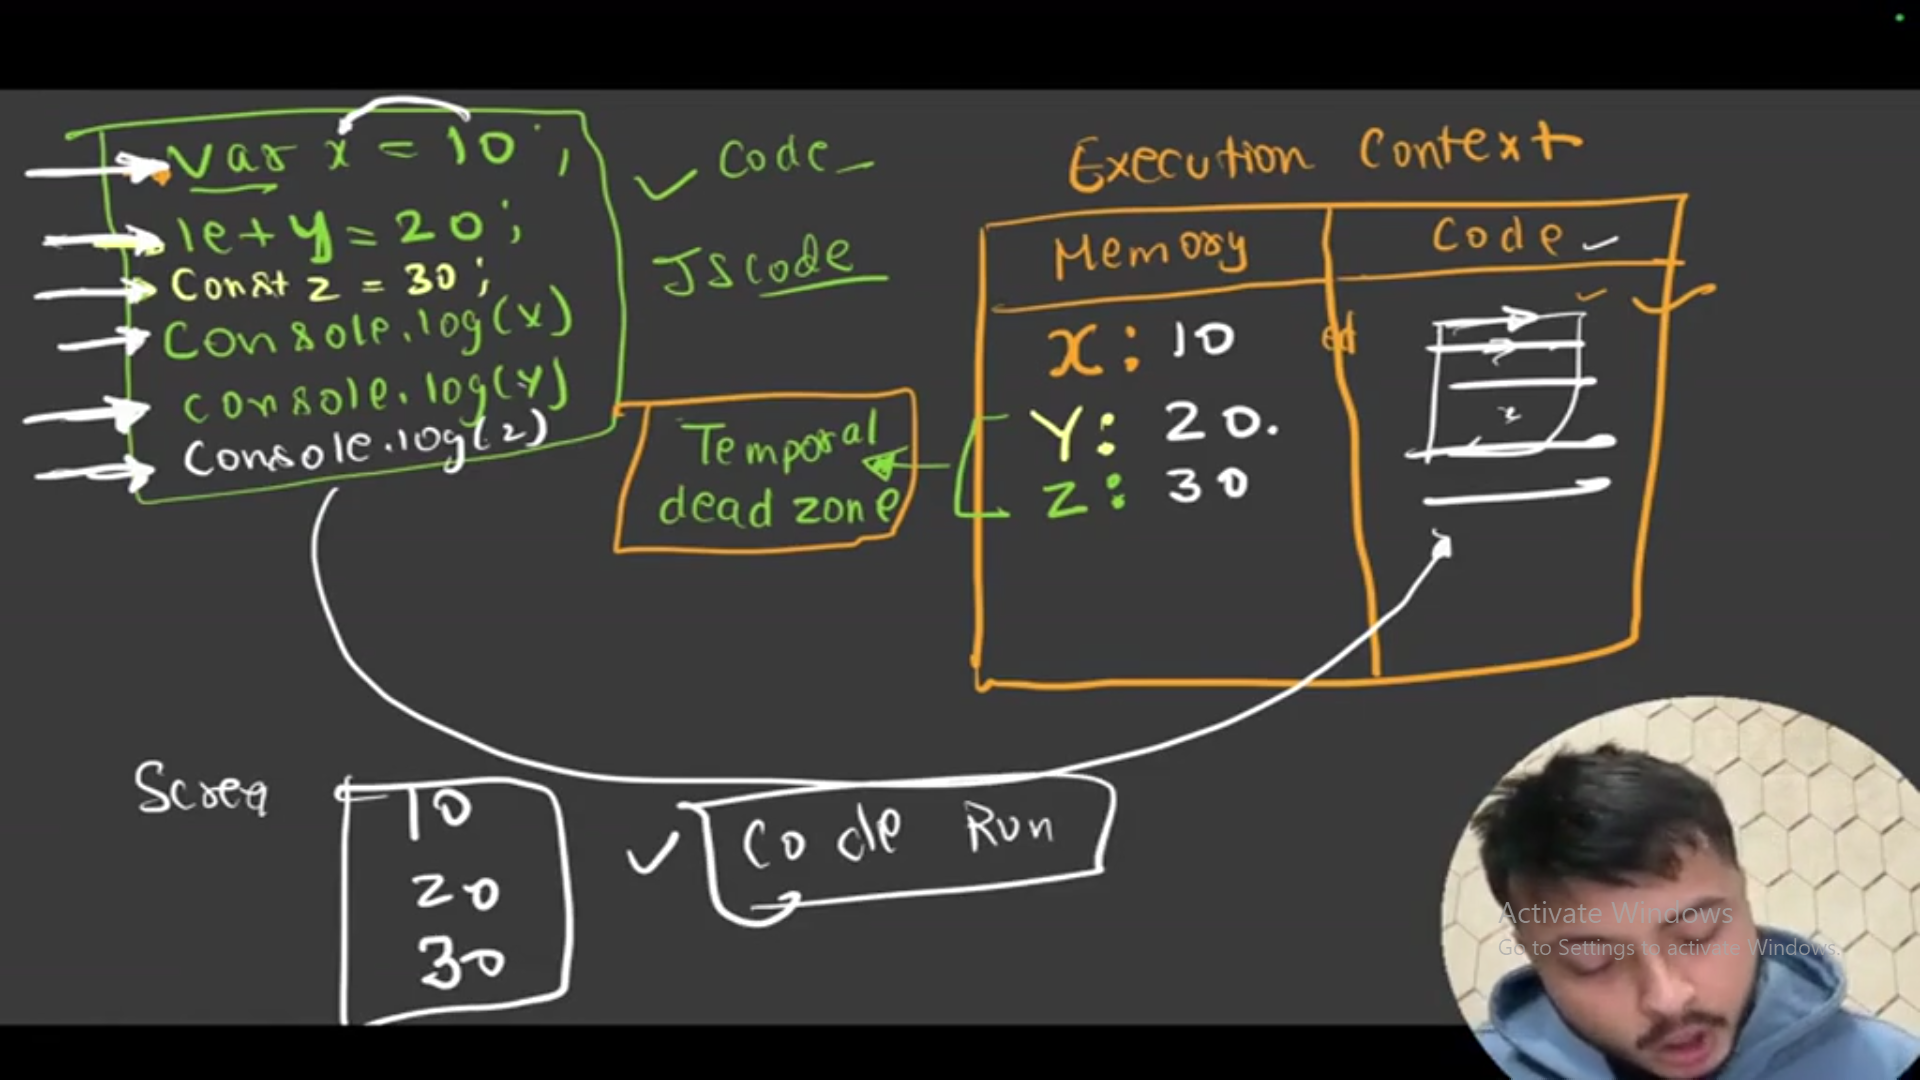 var x = 10 ;
let y = 20 ;
Const z = 30 ;
Console.log(x)
console.log(y)
Console.log(z)
Code
JS code
Temporal
dead zone
Execution Context
Memory
Code
x : 10
Y : 20.
Z : 30
Screa
10
20
30
Code Run
Activate Windows
Go to Settings to activate Windows.